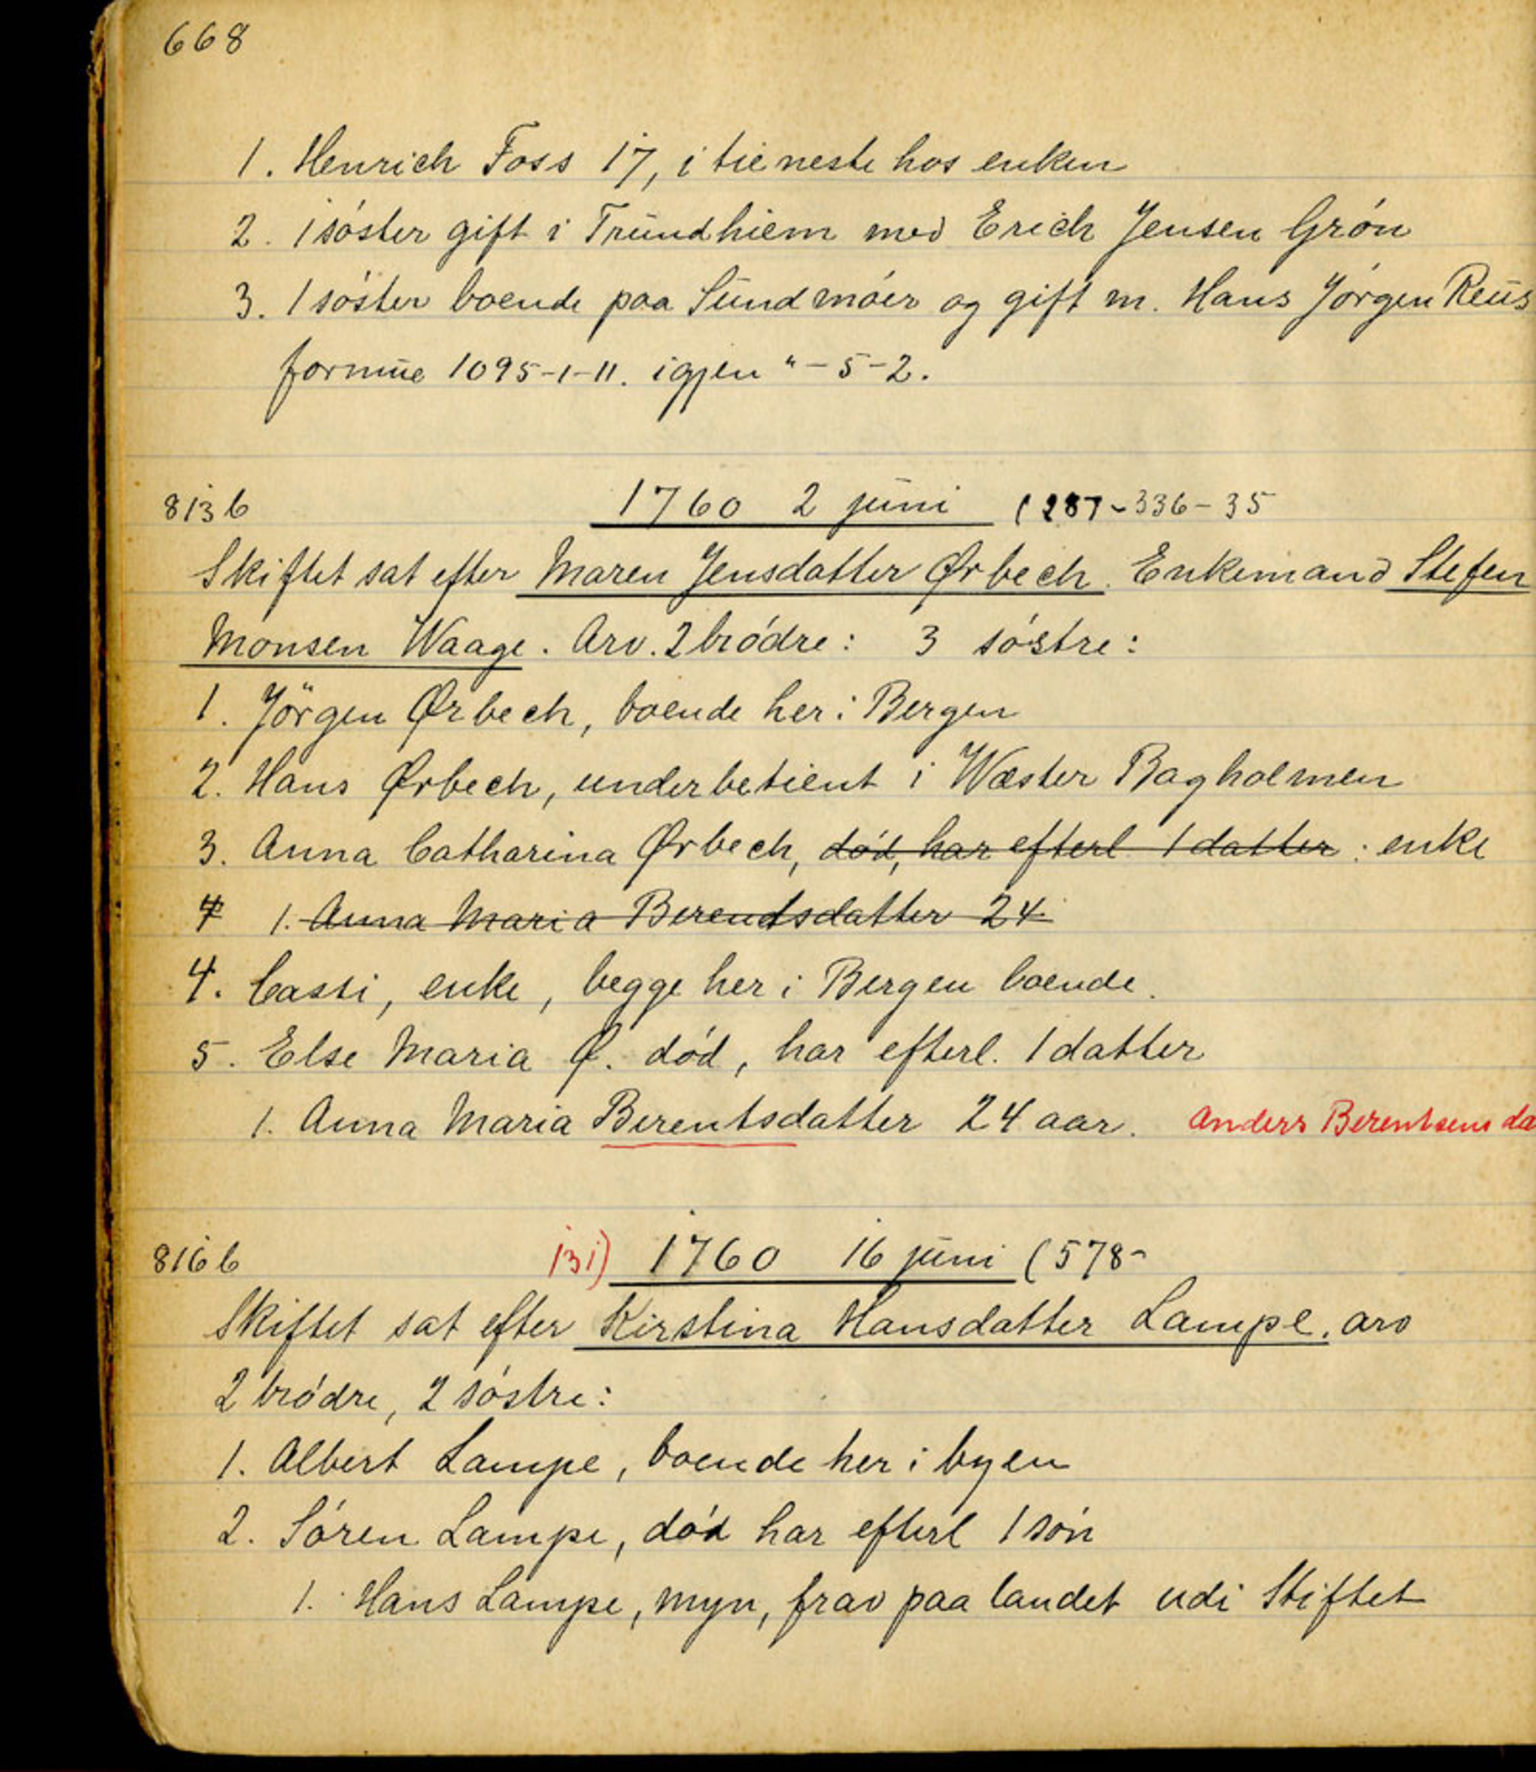 668
1. Henrich Foss 17, i tieneste hos enken
2. 1 söster gift i Trundhiem med Erich Jensen Grön
3. 1 söster boende paa Sundmöer og gift m. Hans Jörgen Reus
formue 1095-1-11. igjen " - 5 - 2.
813 b 1760 2 juni (287-336-35
Skiftet sat efter Maren Jensdatter Ørbech. Enkemand Stefen
Monsen Waage. Arv. 2 brödre: 3 söstre:
1. Jörgen Ørbech, boende her i Bergen
2. Hans Ørbech, underbetient i Wæster Bagholmen
3. Anna Catharina Ørbech, död, har efterl 1 datter : enke
4 1. Anna Maria Berendsdatter 24
4. Cassi, enke, begge her i Bergen boende.
5. Else Maria Ø. död, har efterl. 1 datter
1. Anna Maria Berentsdatter 24 aar. Anders Berentsens da
816 b 131) 1760 16 juni (578-
Skiftet sat efter Kirstina Hansdatter Lampe. arv
2 brödre, 2 söstre:
1. Albert Lampe, boende her i byen
2. Sören Lampe, död har efterl 1 sön
1. Hans Lampe, myn, frav paa landet udi Stiftet